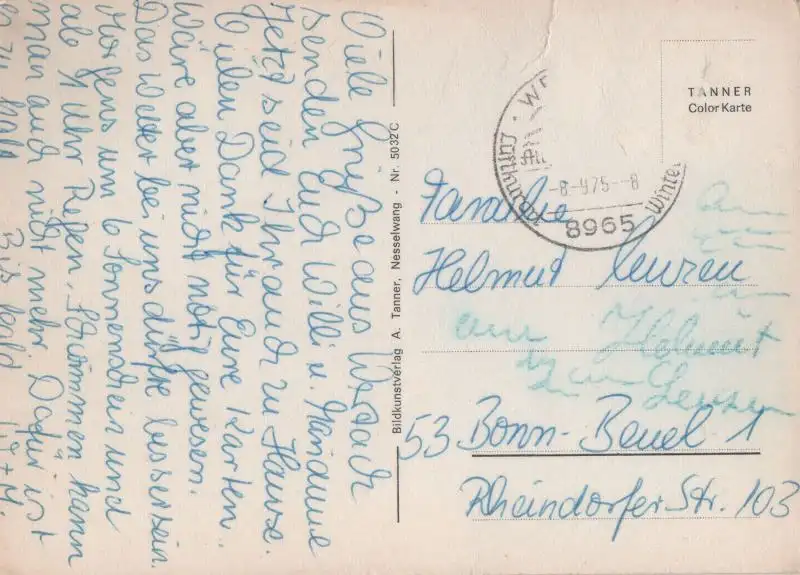 Viele Grüße aus Wertach
senden Euch Willi u. Marianne
Jetzt seid Ihr auch zu Hause.
Vielen Dank für Eure Karten.
Wäre aber nicht nötig gewesen.
Das Wetter bei uns dürfte besser sein.
Morgens um 6 Sonnenschein und
ab 11 Uhr Regen, Schwimmen kann
man auch nicht mehr. Dafür ist
es zu kalt
Bis bald
Bildkunstverlag A. Tanner, Nesselwang - Nr. 5032 C
TANNER
Color Karte
Luftkurort
-8-9.75--8
8965
Winter
Familie
Helmut
53 Bonn-Beuel 1
Rheindorfer Str. 103
an
Helmut